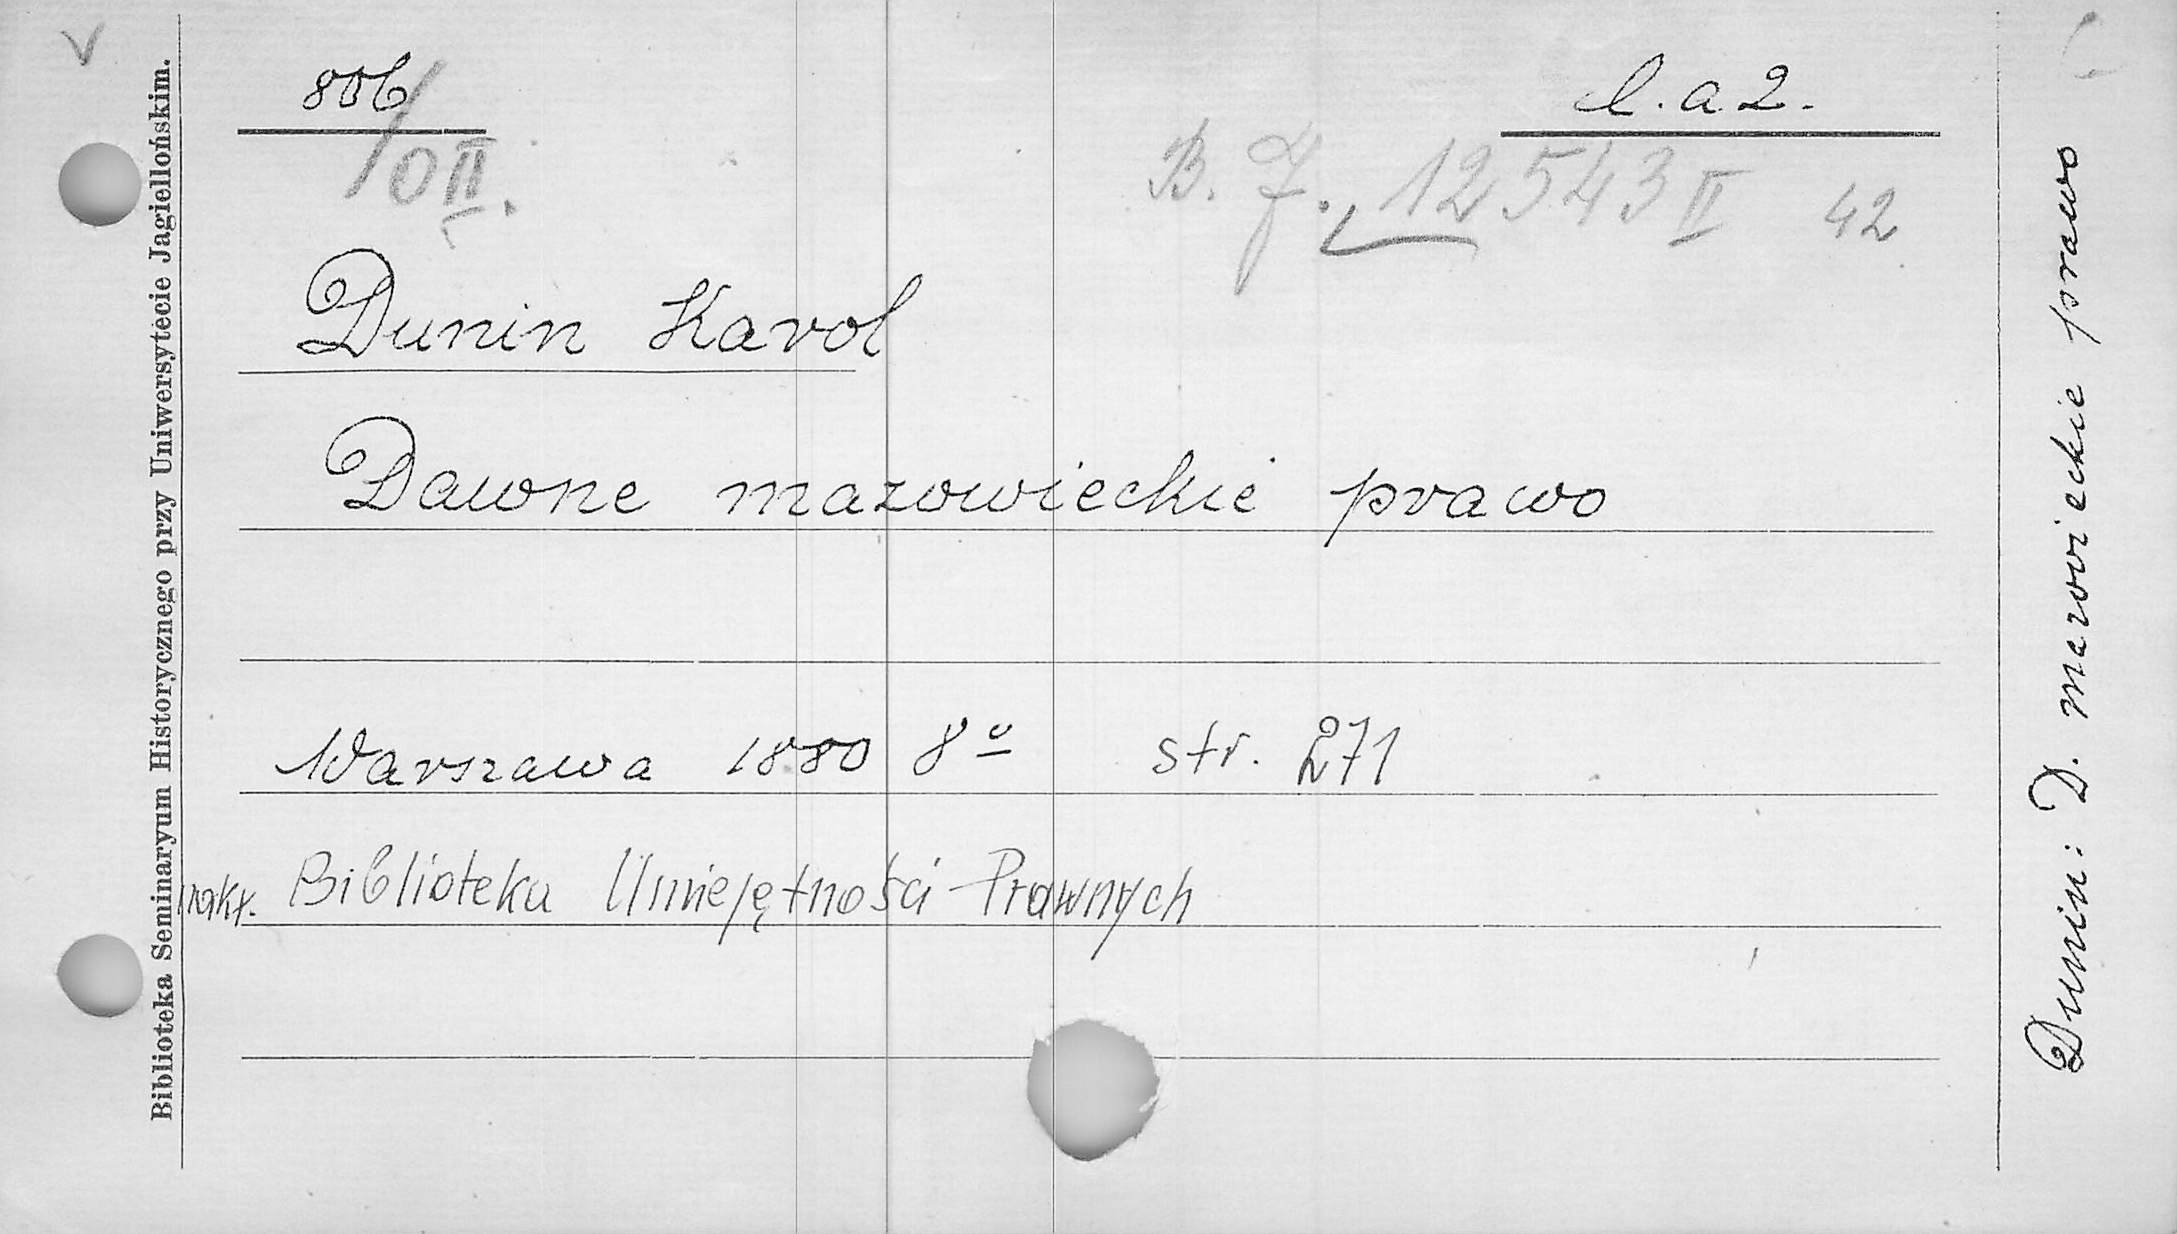 V
806 l. a 2.
/0 II. B. J. 12543 II 42
Dunin Karol
Dawne mazowieckie prawo
Warszawa 1880 8º str. 271
nakł. Biblioteka Umiejętności Prawnych
Biblioteka Seminaryum Historycznego przy Uniwersytecie Jagiellońskim.
Dunin: D. mazowieckie prawo